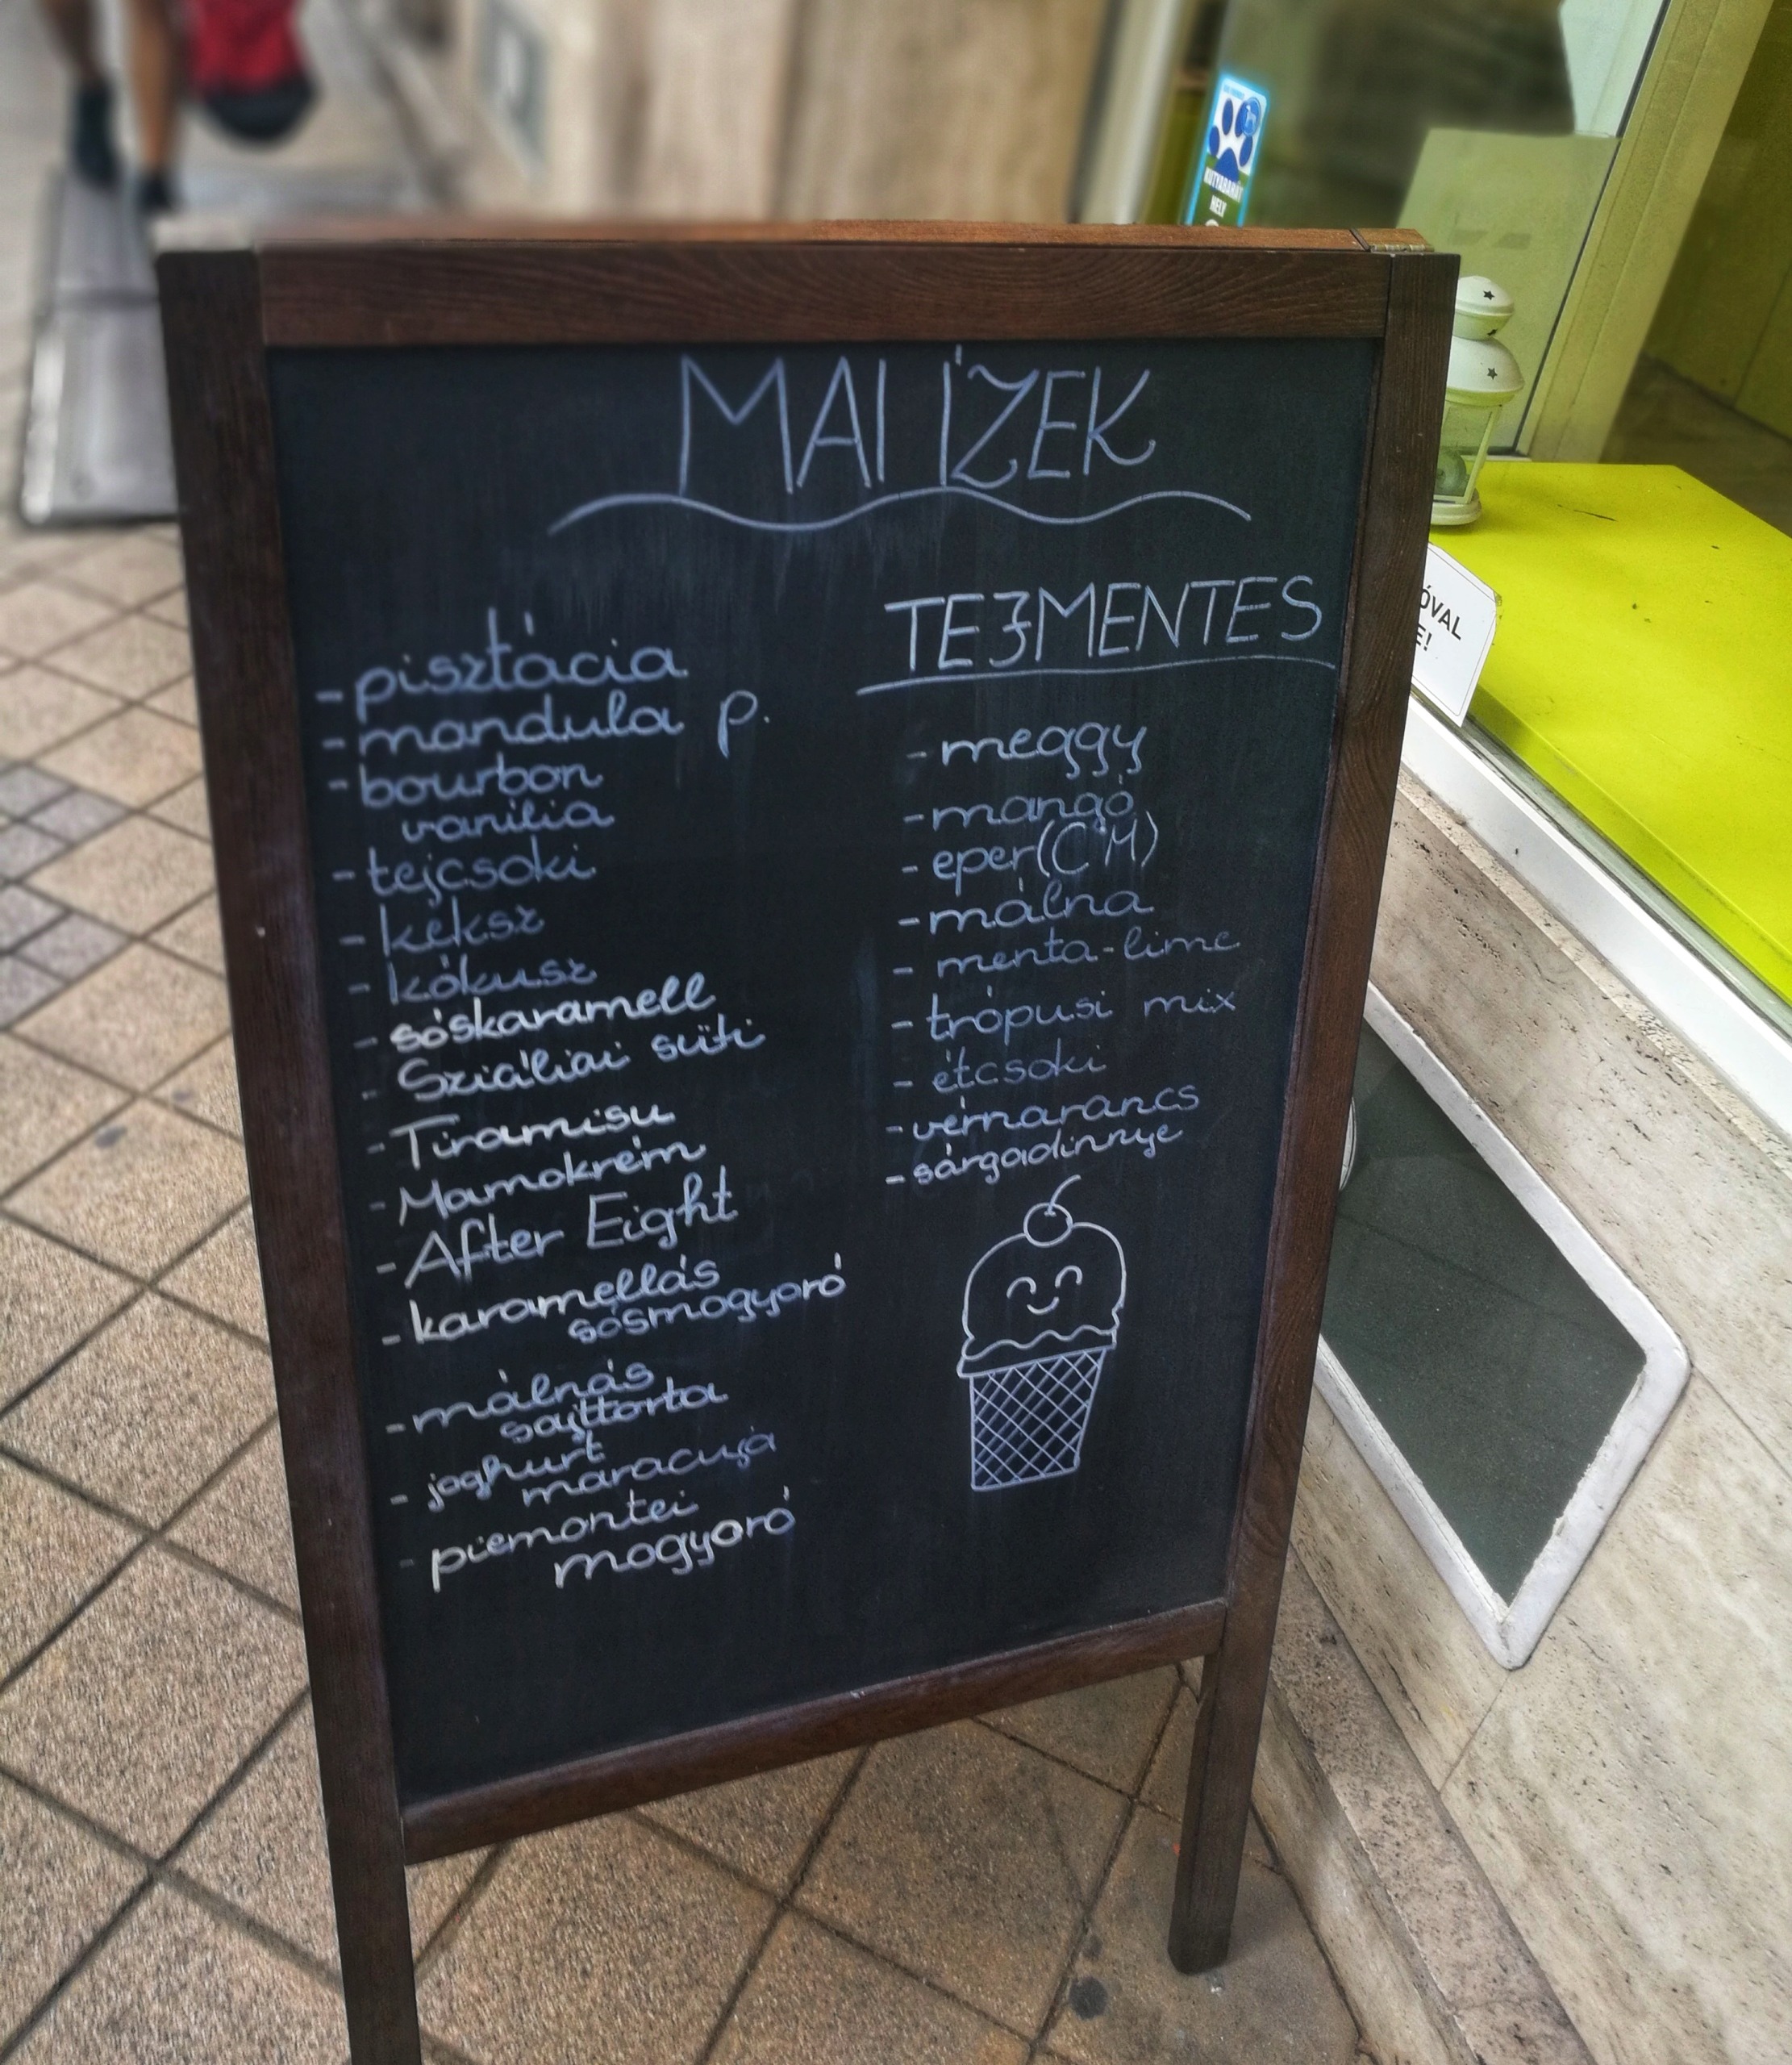 MAI ÍZEK
- pisztácia
- mandula p.
- bourbon
vanilia
- tejcsoki
- keksz
- kókusz
- sóskaramell
- Sziciliai süti
- Tiramisu
- Mamokrém
- After Eight
- karamellás
sósmogyoró
- málnás
sajttorta
- joghurt
maracuja
- piemontei
mogyoró
TEJMENTES
- meggy
- mangó
- eper (C"M)
- málna
- menta-lime
- trópusi mix
- étcsoki
- vérnarancs
- sárgadinnye
KUTYABARÁT
HELY
ÓVAL
E!